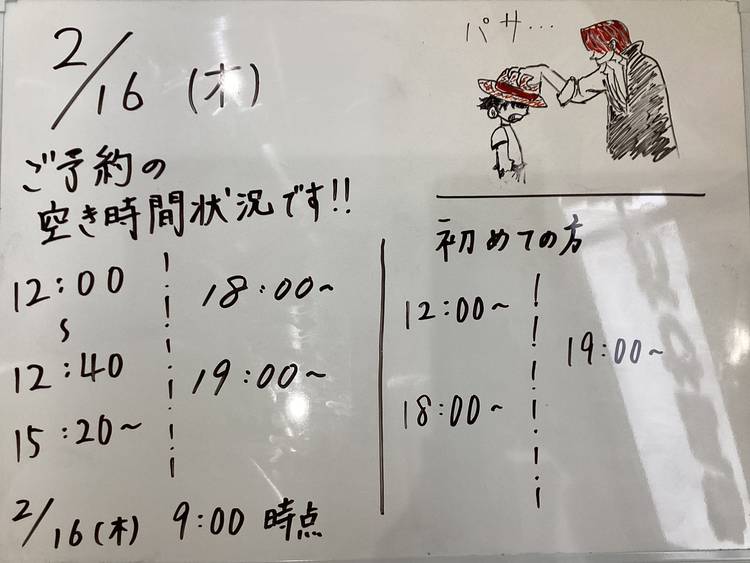 2/16 (木)
パサ…
ご予約の
空き時間状況です!!
12:00
〜
12:40
15:20〜
18:00〜
19:00〜
初めての方
12:00〜
18:00〜
19:00〜
2/16(木) 9:00 時点